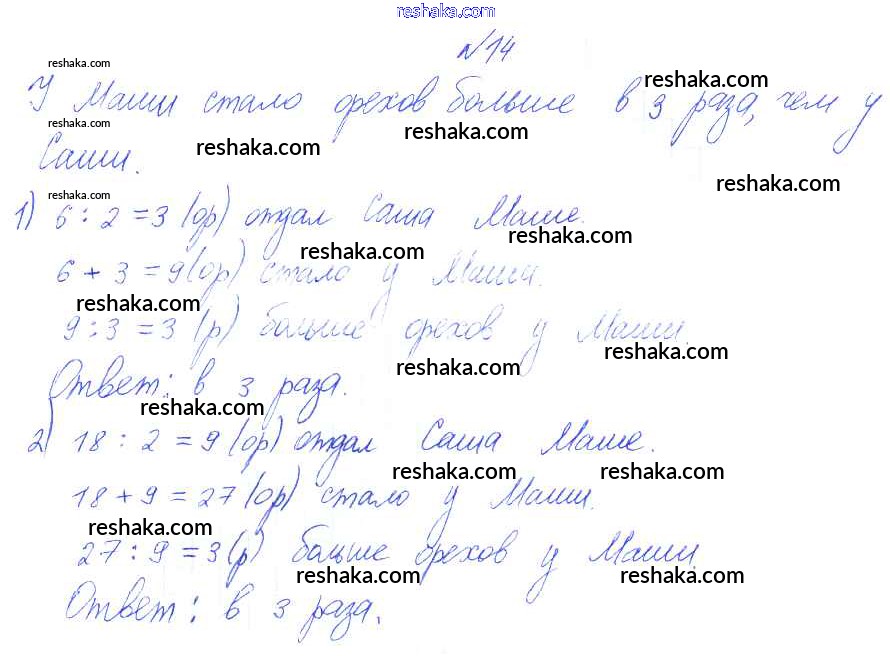 reshaka.com
№14
reshaka.com
reshaka.com
У Маши стало орехов больше в 3 раза, чем у
reshaka.com
reshaka.com
reshaka.com
Саши.
reshaka.com
reshaka.com
1) 6 : 2 = 3 (ор) отдал Саша Маше.
reshaka.com
reshaka.com
6 + 3 = 9 (ор) стало у Маши.
reshaka.com
9 : 3 = 3 (р) больше орехов у Маши.
reshaka.com
reshaka.com
Ответ: в 3 раза.
reshaka.com
2) 18 : 2 = 9 (ор) отдал Саша Маше.
reshaka.com
reshaka.com
18 + 9 = 27 (ор) стало у Маши.
reshaka.com
27 : 9 = 3 (р) больше орехов у Маши
reshaka.com
reshaka.com
Ответ: в 3 раза.